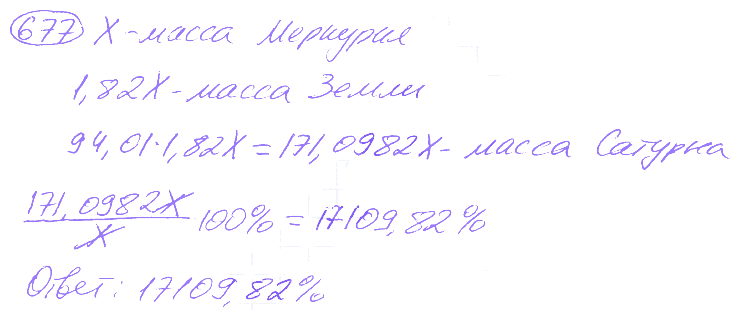 677 X - масса Меркурия
1,82X - масса Земли
94,01·1,82X = 171,0982X - масса Сатурна
171,0982X / X 100% = 17109,82%
Ответ: 17109,82%